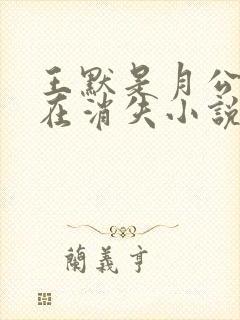 王默是月公
在消失小說
蘭義亨